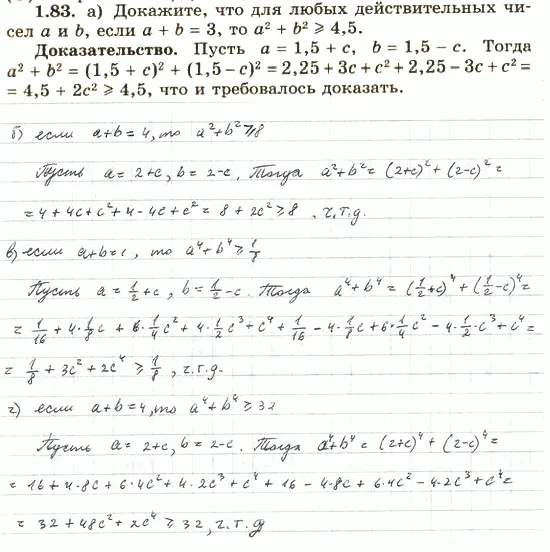 1.83. а) Докажите, что для любых действительных чи-
сел a и b, если a + b = 3, то a² + b² ⩾ 4,5.
Доказательство. Пусть a = 1,5 + c, b = 1,5 – c. Тогда
a² + b² = (1,5 + c)² + (1,5 – c)² = 2,25 + 3c + c² + 2,25 – 3c + c² =
= 4,5 + 2c² ⩾ 4,5, что и требовалось доказать.
б) если a+b=4, то a²+b²⩾8
Пусть a=2+c, b=2-c. Тогда a²+b²=(2+c)²+(2-c)²=
=4+4c+c²+4-4c+c²=8+2c²⩾8, ч.т.д.
в) если a+b=1, то a⁴+b⁴⩾1/8
Пусть a=1/2+c, b=1/2-c. Тогда a⁴+b⁴=(1/2+c)⁴+(1/2-c)⁴=
=1/16+4·1/8c+6·1/4c²+4·1/2c³+c⁴+1/16-4·1/8c+6·1/4c²-4·1/2·c³+c⁴=
=1/8+3c²+2c⁴⩾1/8, ч.т.д.
г) если a+b=4, то a⁴+b⁴⩾32
Пусть a=2+c, b=2-c. Тогда a⁴+b⁴=(2+c)⁴+(2-c)⁴=
=16+4·8c+6·4c²+4·2c³+c⁴+16-4·8c+6·4c²-4·2c³+c⁴=
=32+48c²+2c⁴⩾32, ч.т.д